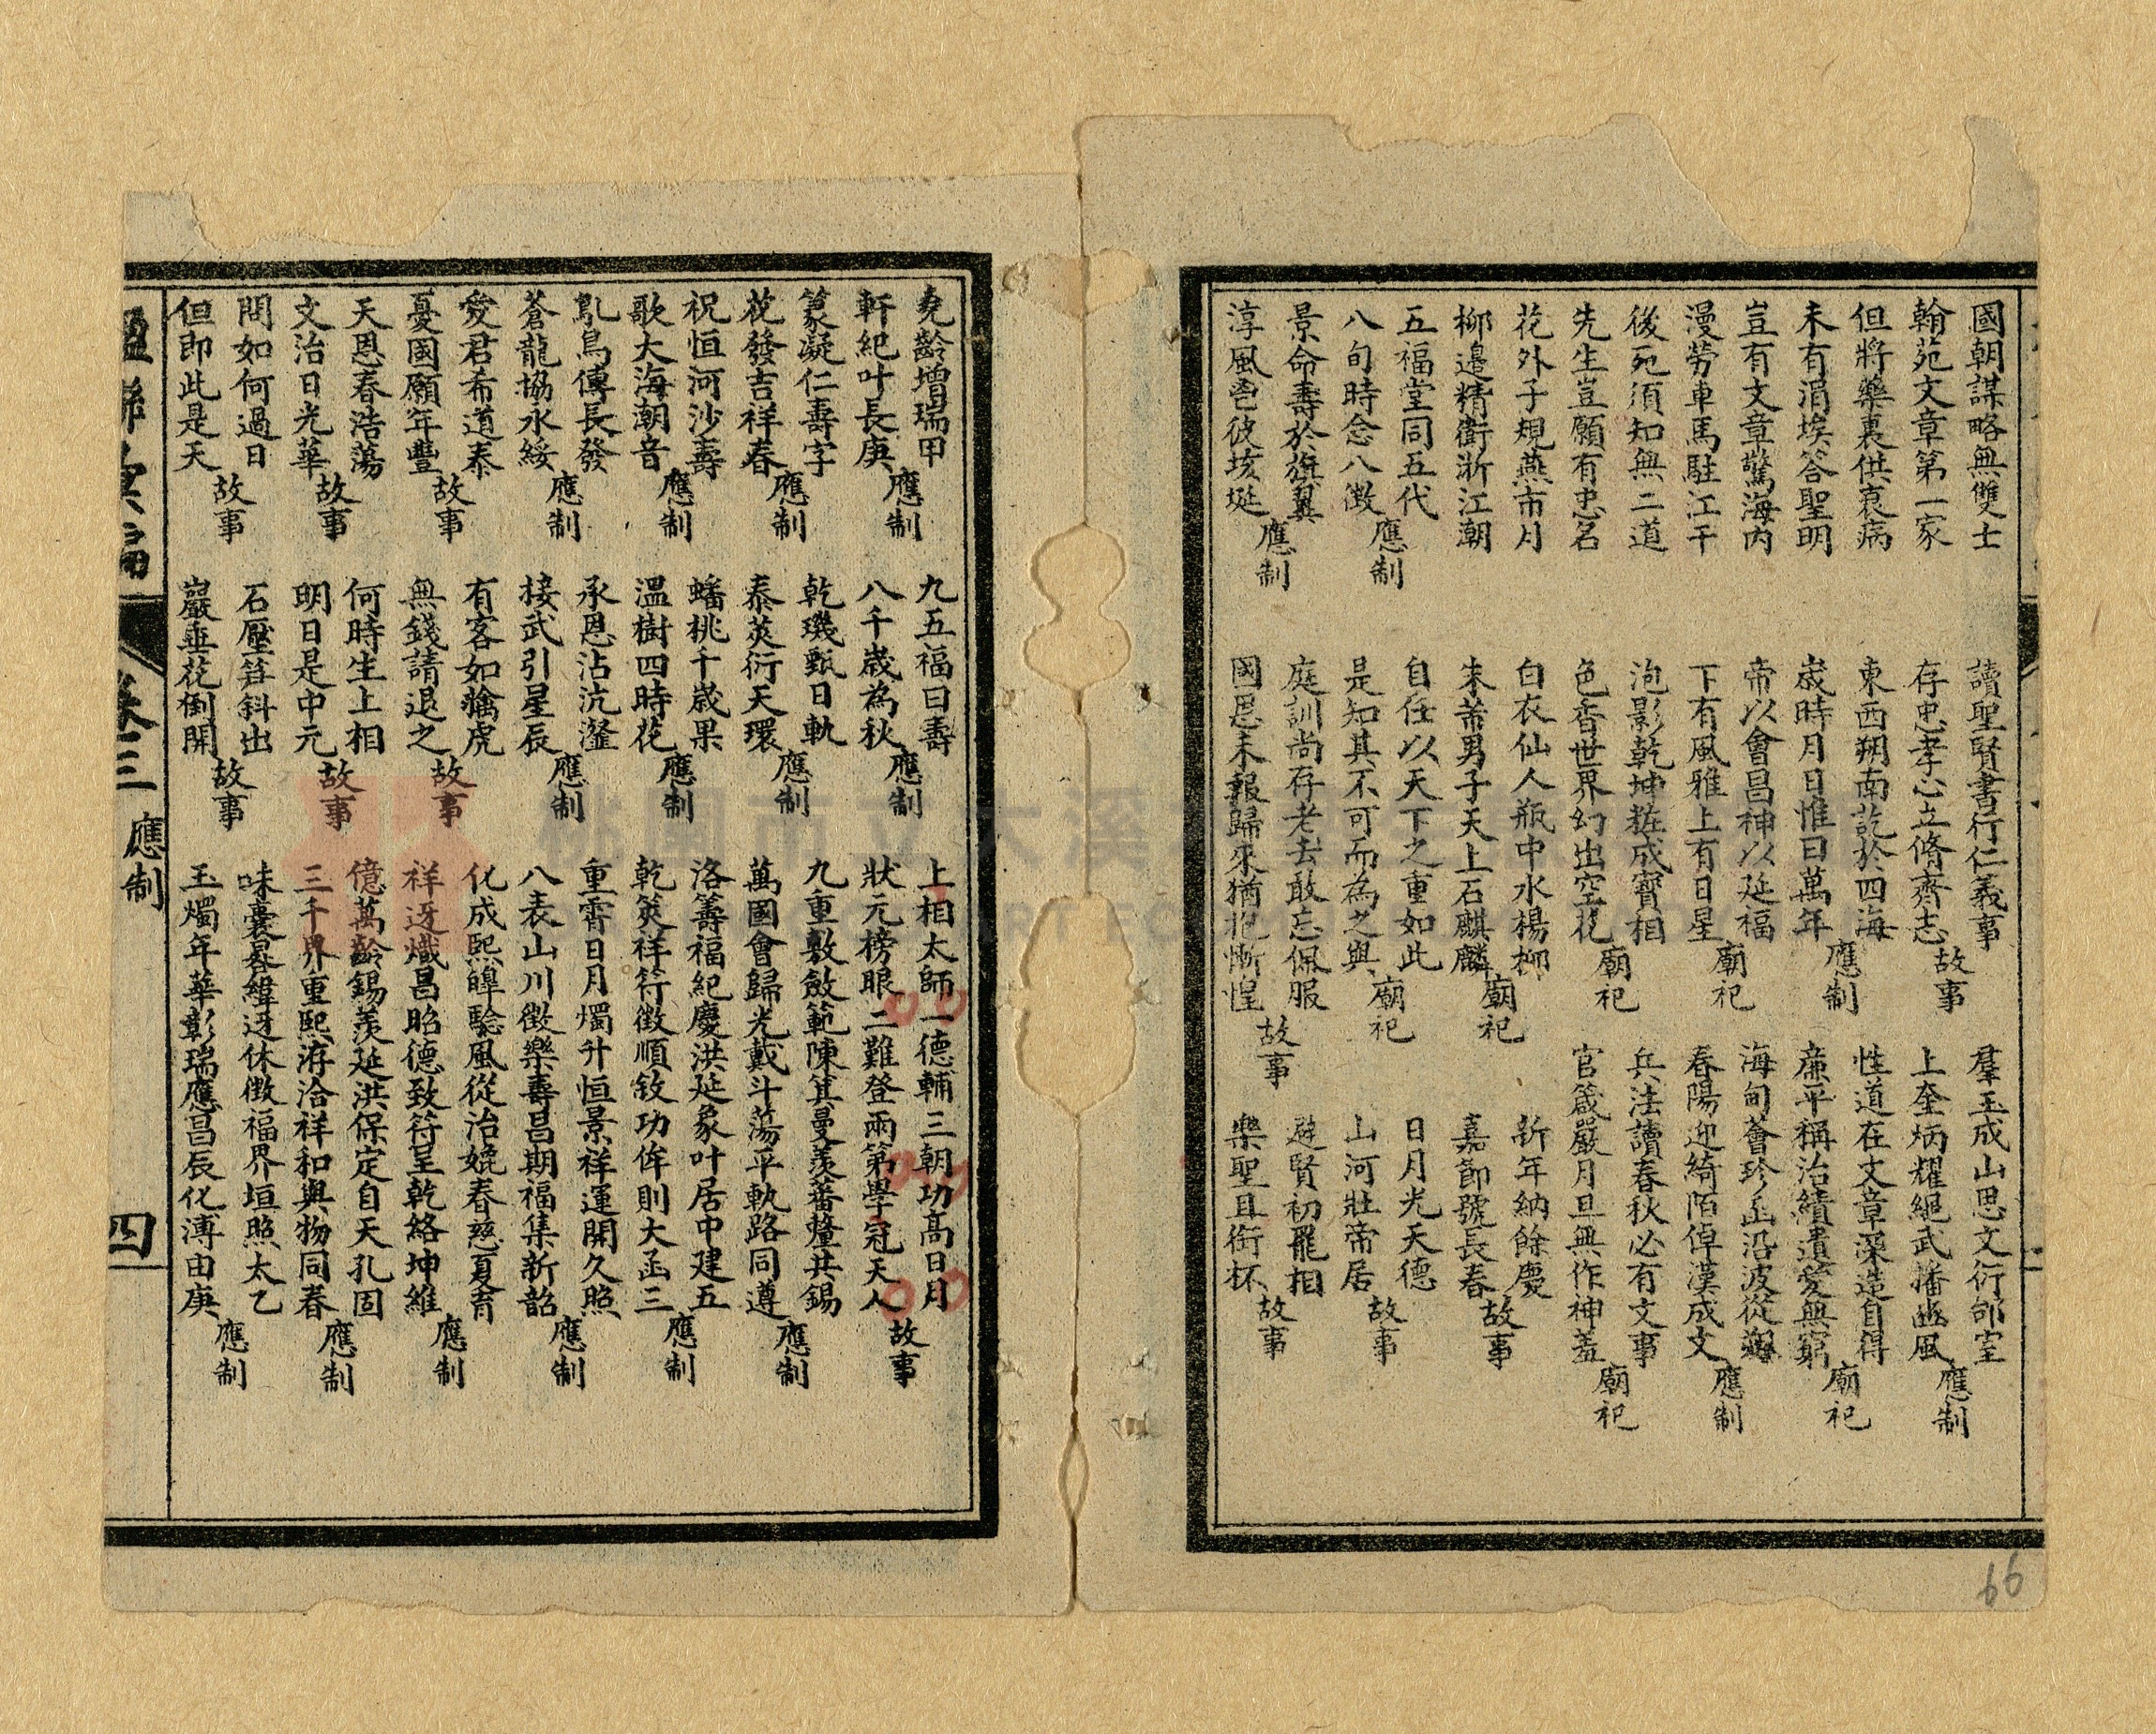 國朝謀略無雙士
翰苑文章第一家
但將藥裹供衰病
未有涓埃答聖明
豈有文章驚海內
漫勞車馬駐江干
後死須知無二道
先生豈願有忠名
花外子規燕市月
柳邊精衛浙江潮
五福堂同五代
八旬時念八徵 應制
景命壽於旗翼
淳風彼垓埏 應制
讀聖賢書行仁義事
存忠孝心立脩齊志 故事
東西朔南訖於四海
歲時月日惟曰萬年 應制
帝以會昌神以延福
下有風雅上有日星 廟祀
泡影乾坤粧成寶相
色香世界幻出空花 廟祀
白衣仙人瓶中水楊柳
朱芾男子天上石麒麟 廟祀
自任以天下之重如此
是知其不可而為之與 廟祀
庭訓尚存老去敢忘佩服
國恩未報歸來猶抱慚惶 故事
羣玉成山思文衍室
上奎炳耀繩武播豳風 應制
性道在文章深造自得
廉平稱治績遺愛無窮 廟祀
海甸薈珍函沿波從
春陽迎綺陌倬漢成文 應制
兵法讀春秋必有文事
官箴嚴月旦無作神羞 廟祀
新年納餘慶
嘉節號長春 故事
日月光天德
山河壯帝居 故事
避賢初罷相
樂聖且銜杯 故事
66
堯齡增瑞甲
軒紀叶長庚 應制
篆凝仁壽字
花發吉祥春 應制
祝恒河沙壽
歌大海潮音 應制
鳦鳥傳長發
蒼龍協永綏 應制
愛君希道泰
憂國願年豐 故事
天恩春浩蕩
文治日光華 故事
問如何過日
但即此是天 故事
九五福曰壽
八千歲為秋 應制
乾璣甄日軌
泰莢衍天環 應制
蟠桃千歲果
溫樹四時花 應制
承恩沾沆瀣
接武引星辰 應制
有客如擒虎
無錢請退之 故事
何時生上相
明日是中元 故事
石壓笋斜出
巖垂花倒開 故事
上相太師一德輔三朝功高日月
狀元榜眼二難登兩第學冠天人 故事
九重敷斂範陳箕曼羨蕃釐共錫
萬國會歸光戴斗蕩平軌路同遵 應制
洛籌福紀慶洪延象叶居中建五
乾筴祥符徵順敘功侔則大函三 應制
重霄日月燭升恒景祥運開久照
八表山川徵樂壽昌期福集新韶 應制
化成熙皥騐風從治媲春慈夏育
祥迓熾昌昭德致符呈乾絡坤維 應制
億萬齡錫羨延洪保定自天孔固
三千界重熙洊洽祥和與物同春 應制
味囊晷緯迓休徵福界垣照太乙
玉燭年華彰瑞應昌辰化溥由庚 應制
楹聯彙編
卷三 應制
四